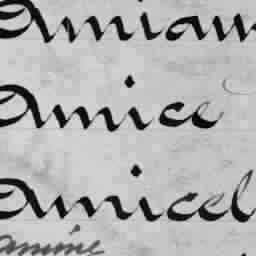 Amiam
Amice
Amicel
amime